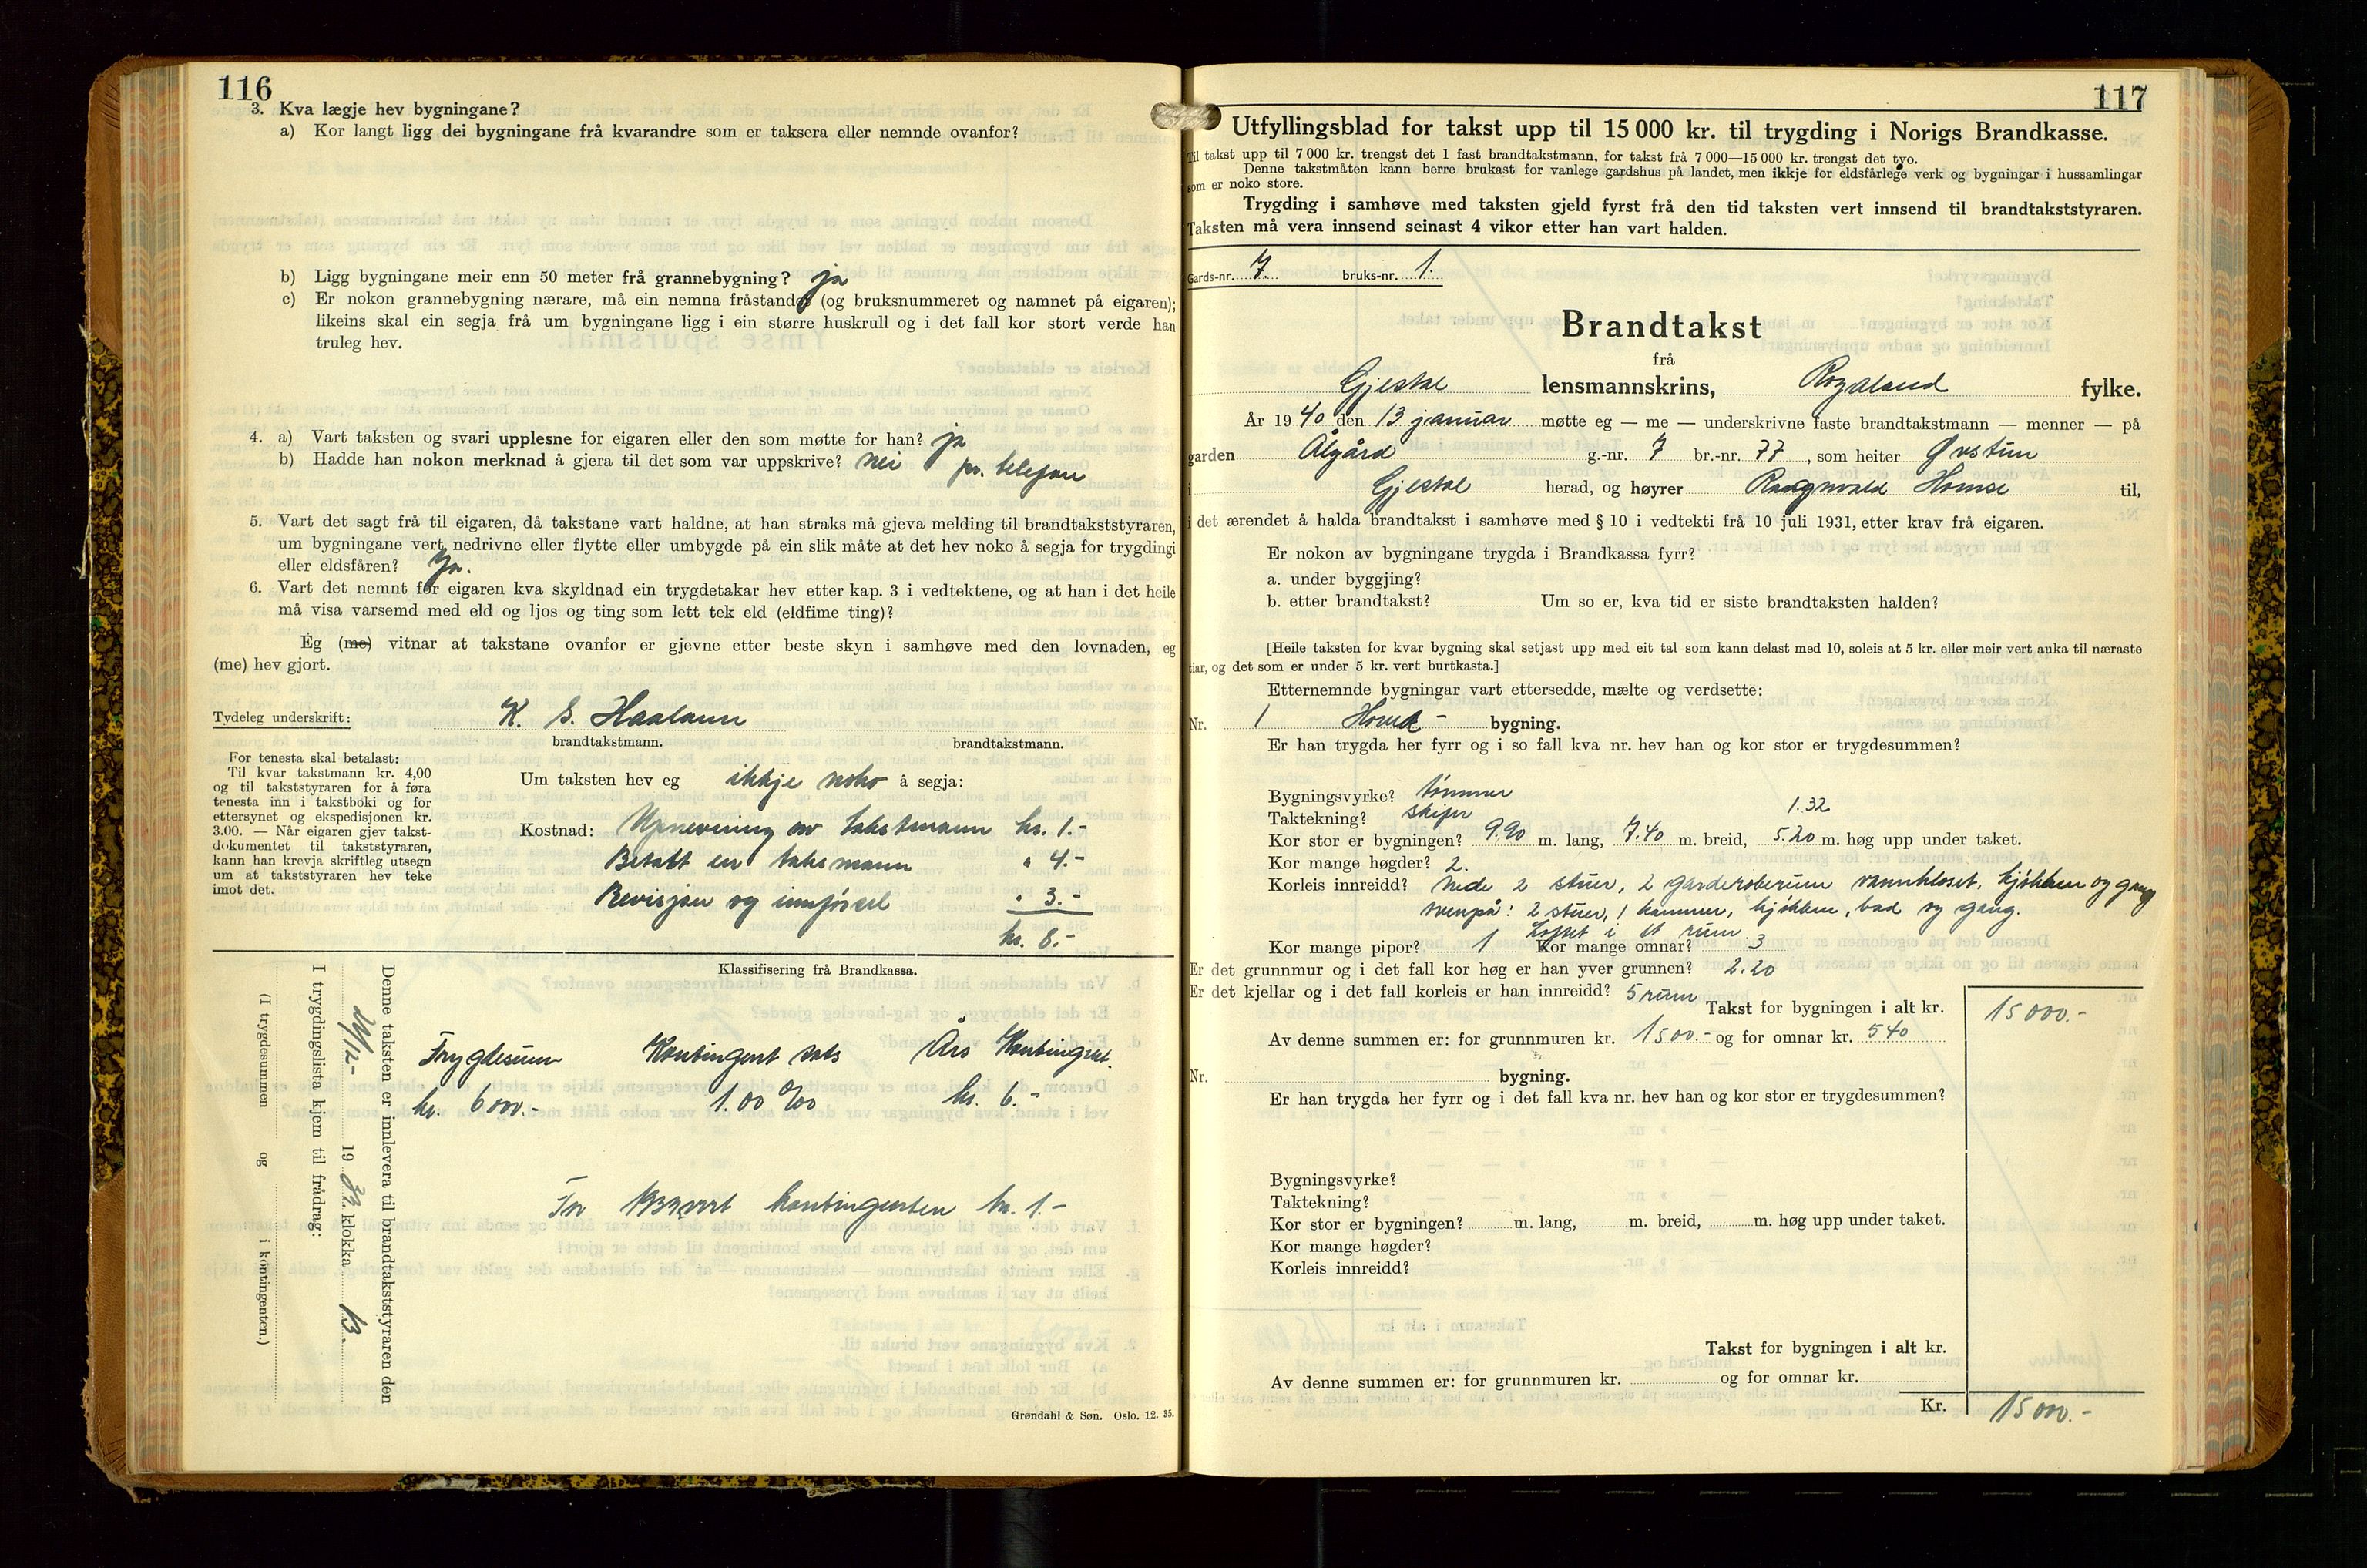 116
3. Kva lægje hev bygningane?
a) Kor langt ligg dei bygningane frå kvarandre som er taksera eller nemnde ovanfor?
b) Ligg bygningane meir enn 50 meter frå grannebygning? ja
c) Er nokon grannebygning nærare, må ein nemna fråstandet (og bruksnummeret og namnet på eigaren);
likeins skal ein segja frå um bygningane ligg i ein større huskrull og i det fall kor stort verde han
truleg hev.
4. a) Vart taksten og svari upplesne for eigaren eller den som møtte for han? ja
b) Hadde han nokon merknad å gjera til det som var uppskrive? nei pr. telefon
5. Vart det sagt frå til eigaren, då takstane vart haldne, at han straks må gjeva melding til brandtakststyraren,
um bygningane vert nedrivne eller flytte eller umbygde på ein slik måte at det hev noko å segja for trygdingi
eller eldsfåren? Ja.
6. Vart det nemnt for eigaren kva skyldnad ein trygdetakar hev etter kap. 3 i vedtektene, og at han i det heile
må visa varsemd med eld og ljos og ting som lett tek eld (eldfime ting)?
Eg (me) vitnar at takstane ovanfor er gjevne etter beste skyn i samhøve med den lovnaden, eg
(me) hev gjort.
Tydeleg underskrift: K. S. Haaland
brandtakstmann. brandtakstmann.
For tenesta skal betalast:
Til kvar takstmann kr. 4,00
og til takststyraren for å føra
tenesta inn i takstboki og for
ettersynet og ekspedisjonen kr.
3.00. — Når eigaren gjev takst-
dokumentet til takststyraren,
kann han krevja skriftleg utsegn
um at takststyraren hev teke
imot det.
Um taksten hev eg ikkje noko å segja:
Kostnad: Upnevning av takstmann kr. 1.-
Betalt en taksmann " 4.-
Revisjon og innførsel " 3.-
kr. 8.-
Klassifisering frå Brandkassa.
Denne taksten er innlevera til brandtakststyraren den
21/12- 19 39. klokka 13.
I trygdingslista kjem til frådrag:
(I trygdesummen og i kontingenten.)
Trygdesum Kontingent sats Års Kontingent.
kr. 6000.- 1.00 ‰ kr. 6.-
kontingenten kr. 1.-
Grøndahl & Søn. Oslo. 12. 35.
117
Utfyllingsblad for takst upp til 15 000 kr. til trygding i Norigs Brandkasse.
Til takst upp til 7 000 kr. trengst det 1 fast brandtakstmann, for takst frå 7 000—15 000 kr. trengst det tvo.
Denne takstmåten kann berre brukast for vanlege gardshus på landet, men ikkje for eldsfårlege verk og bygningar i hussamlingar
som er noko store.
Trygding i samhøve med taksten gjeld fyrst frå den tid taksten vert innsend til brandtakststyraren.
Taksten må vera innsend seinast 4 vikor etter han vart halden.
Gards-nr. 7. bruks-nr. 1.
Brandtakst
frå
Gjestal lensmannskrins, Rogaland fylke.
År 19 40 den 13 januar møtte eg — me — underskrivne faste brandtakstmann — menner — på
garden Ålgård g.-nr. 7 br.-nr. 77, som heiter Øvstun
i Gjestal herad, og høyrer Rangnvald Homse til,
i det ærendet å halda brandtakst i samhøve med § 10 i vedtekti frå 10 juli 1931, etter krav frå eigaren.
Er nokon av bygningane trygda i Brandkassa fyrr?
a. under byggjing?
b. etter brandtakst? Um so er, kva tid er siste brandtaksten halden?
[Heile taksten for kvar bygning skal setjast upp med eit tal som kann delast med 10, soleis at 5 kr. eller meir vert auka til næraste
tiar, og det som er under 5 kr. vert burtkasta.]
Etternemnde bygningar vart ettersedde, mælte og verdsette:
Nr. 1 Hoved- bygning.
Er han trygda her fyrr og i so fall kva nr. hev han og kor stor er trygdesummen?
Bygningsvyrke? tømmer
Taktekning? skifer 1.32
Kor stor er bygningen? 9.90 m. lang, 7.40 m. breid, 5.20 m. høg upp under taket.
Kor mange høgder? 2.
Korleis innreidd? Nede 2 stuer, 2 garderoberum vannkloset, kjøkken og gang
ovenpå: 2 stuer, 1 kammer, kjøkken, bad og gang.
Loftet i et rum
Kor mange pipor? 1 Kor mange omnar? 3
Er det grunnmur og i det fall kor høg er han yver grunnen? 2.20
Er det kjellar og i det fall korleis er han innreidd? 5 rum
Takst for bygningen i alt kr. 15000.-
Av denne summen er: for grunnmuren kr. 1500.- og for omnar kr. 540
Nr. bygning.
Er han trygda her fyrr og i det fall kva nr. hev han og kor stor er trygdesummen?
Bygningsvyrke?
Taktekning?
Kor stor er bygningen? m. lang, m. breid, m. høg upp under taket.
Kor mange høgder?
Korleis innreidd?
Takst for bygningen i alt kr.
Av denne summen er: for grunnmuren kr. og for omnar kr.
Kr. 15000.-